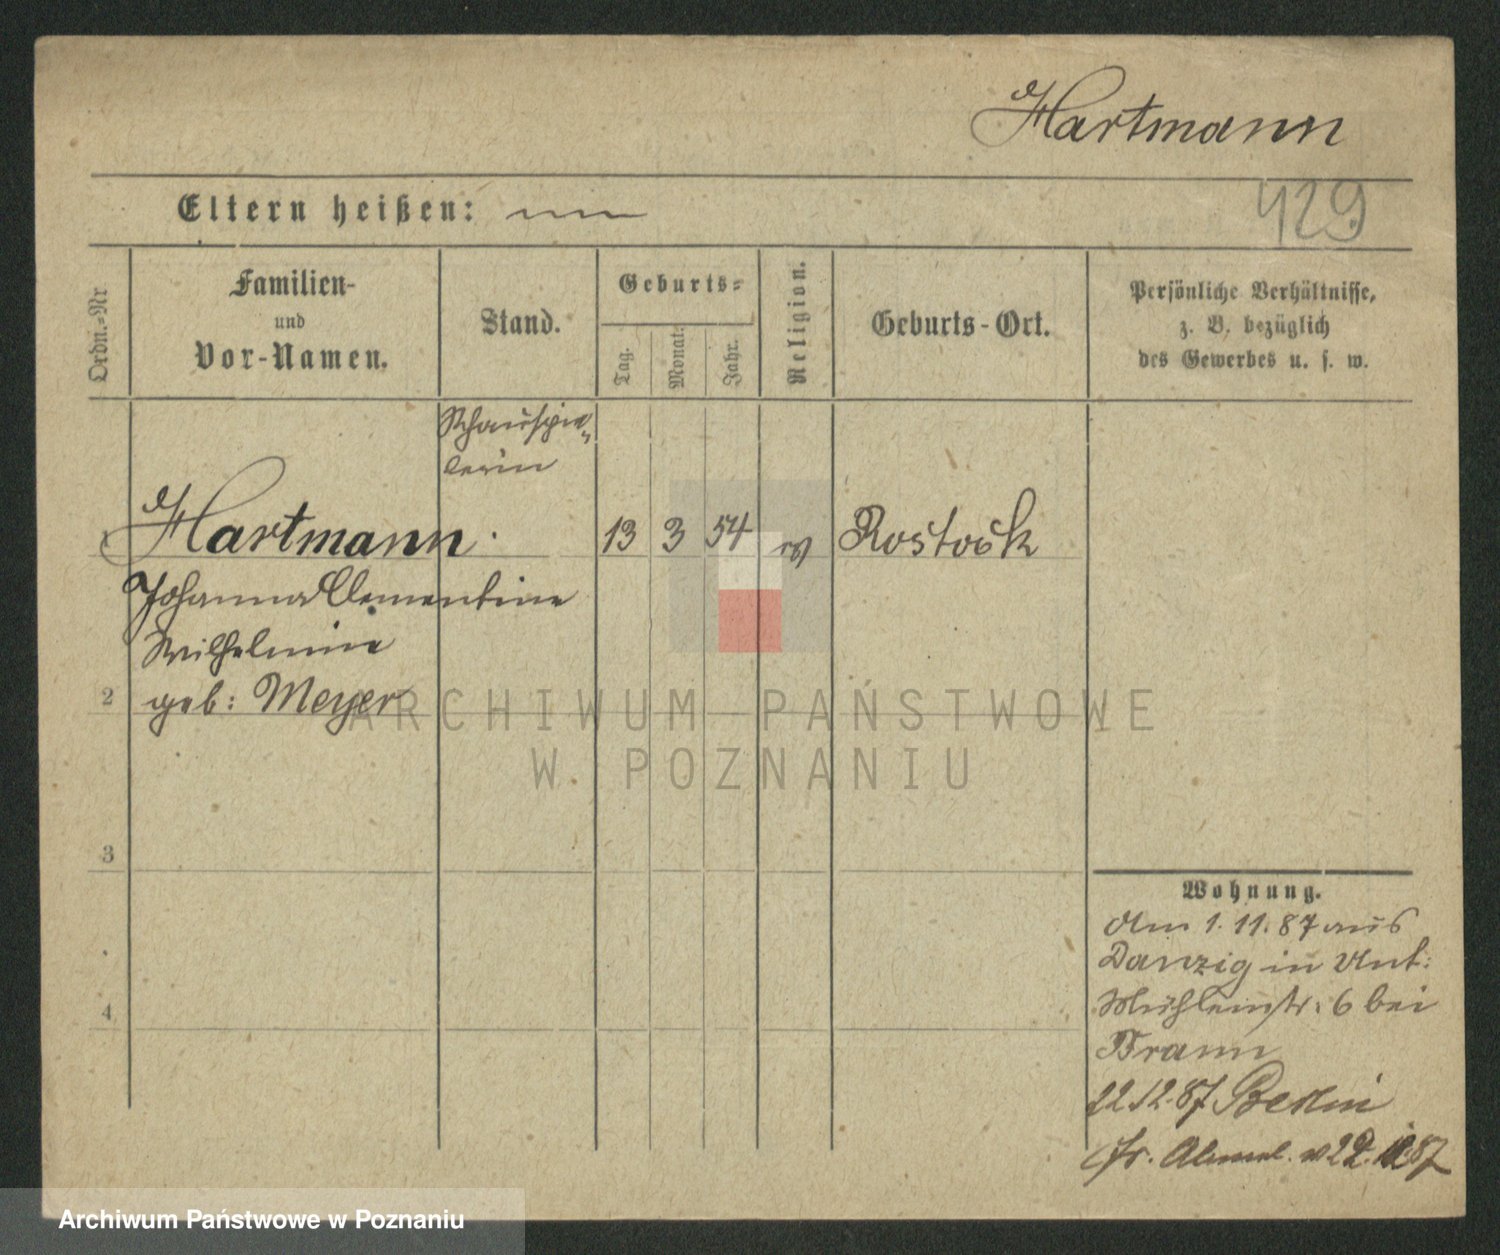 Hartmann
Eltern heißen:
429
Ordn.-Nr
Familien-
und
Vor-Namen.
Stand.
Geburts-
Tag.
Monat.
Jahr.
Religion.
Geburts-Ort.
Persönliche Verhältnisse,
z. B. bezüglich
des Gewerbes u. s. w.
Schauspie-
lerin
1 Hartmann. 13 3 54 ev Rostock
Johanna Clementine
Wilhelmine
2 geb: Meyer
ARCHIWUM PAŃSTWOWE
W POZNANIU
3
4
Wohnung.
Am 1. 11. 87 aus
Danzig in Unt:
Mühlenstr: 6 bei
22.12.87 Berlin
fr. 87
Archiwum Państwowe w Poznaniu